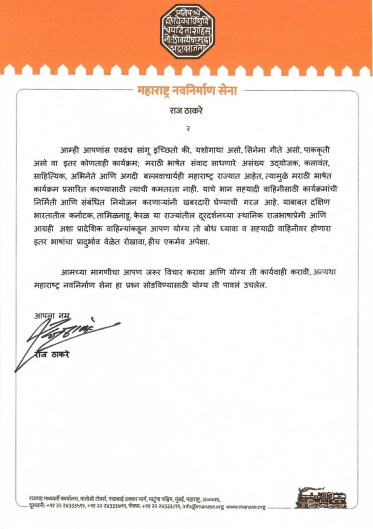 महाराष्ट्र नवनिर्माण सेना
राज ठाकरे
२
आम्ही आपणांस एवढंच सांगू इच्छितो की, यशोगाथा असो, सिनेमा गीते असो, पाककृती
असो वा इतर कोणताही कार्यक्रम; मराठी भाषेत संवाद साधणारे असंख्य उद्योजक, कलावंत,
साहित्यिक, अभिनेते आणि अगदी बल्लवाचार्यही महाराष्ट्र राज्यात आहेत,त्यामुळे मराठी भाषेत
कार्यक्रम प्रसारित करण्यासाठी त्याची कमतरता नाही. याचे भान सह्याद्री वाहिनीसाठी कार्यक्रमांची
निर्मिती आणि संबंधित नियोजन करणाऱ्यांनी खबरदारी घेण्याची गरज आहे. याबाबत दक्षिण
भारतातील कर्नाटक, तामिळनाडू, केरळ या राज्यांतील दूरदर्शनच्या स्थानिक राजभाषाप्रेमी आणि
आग्रही अशा प्रादेशिक वाहिन्यांकडून आपण योग्य तो बोध घ्यावा व सह्याद्री वाहिनीवर होणारा
इतर भाषांचा प्रादुर्भाव वेळेत रोखावा, हीच एकमेव अपेक्षा.
आमच्या मागणीचा आपण जरूर विचार करावा आणि योग्य ती कार्यवाही करावी, अन्यथा
महाराष्ट्र नवनिर्माण सेना हा प्रश्न सोडविण्यासाठी योग्य ती पावलं उचलेल.
आपला नम्र
राज ठाकरे
राजगड मध्यवर्ती कार्यालय, मातोश्री टॉवर्स, पद्माबाई ठक्कर मार्ग, माटुंगा पश्चिम, मुंबई, महाराष्ट्र, ४०००१६.
info@manase.org www.manase.org